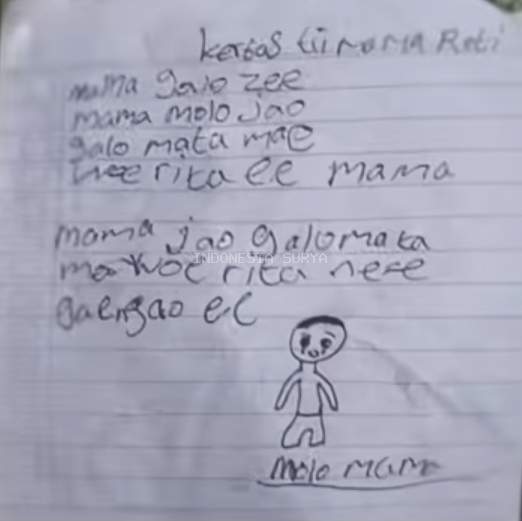 kertas tii mama Reti
mama galo zee
mama molo jao
galo mata mae
woe rita ee mama
mama jao galo mata
mae woe rita ne'e
gae ngao ee
molo mama
INDONESIA SURYA